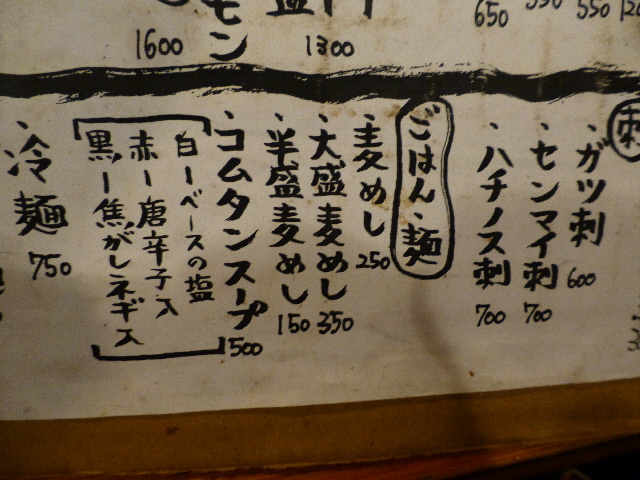 モン
1600
1300
650
550
刺
・ガツ刺
600
・センマイ刺
700
・ハチノス刺
700
ごはん・麺
・麦めし
250
・大盛麦めし
350
・半盛麦めし
150
・コムタンスープ
500
白ーベースの塩
赤ー唐辛子入
黒ー焦がしネギ入
・冷麺
750